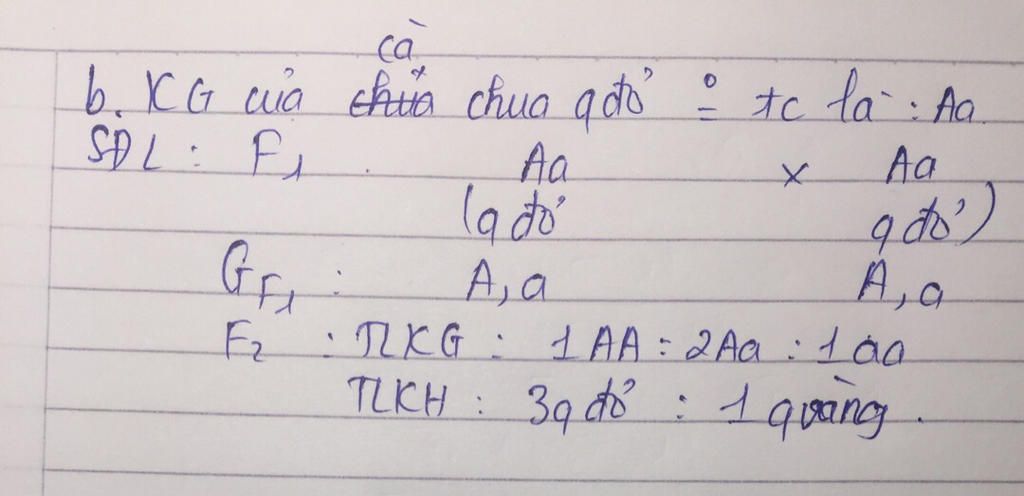 cà
b. KG của chưa chua q đỏ o̲ tc là : Aa.
SĐL : F1 Aa x Aa
(q đỏ q đỏ)
GF1 : A, a A, a
F2 : TLKG : 1AA : 2Aa : 1aa
TLKH : 3q đỏ : 1 q vàng.